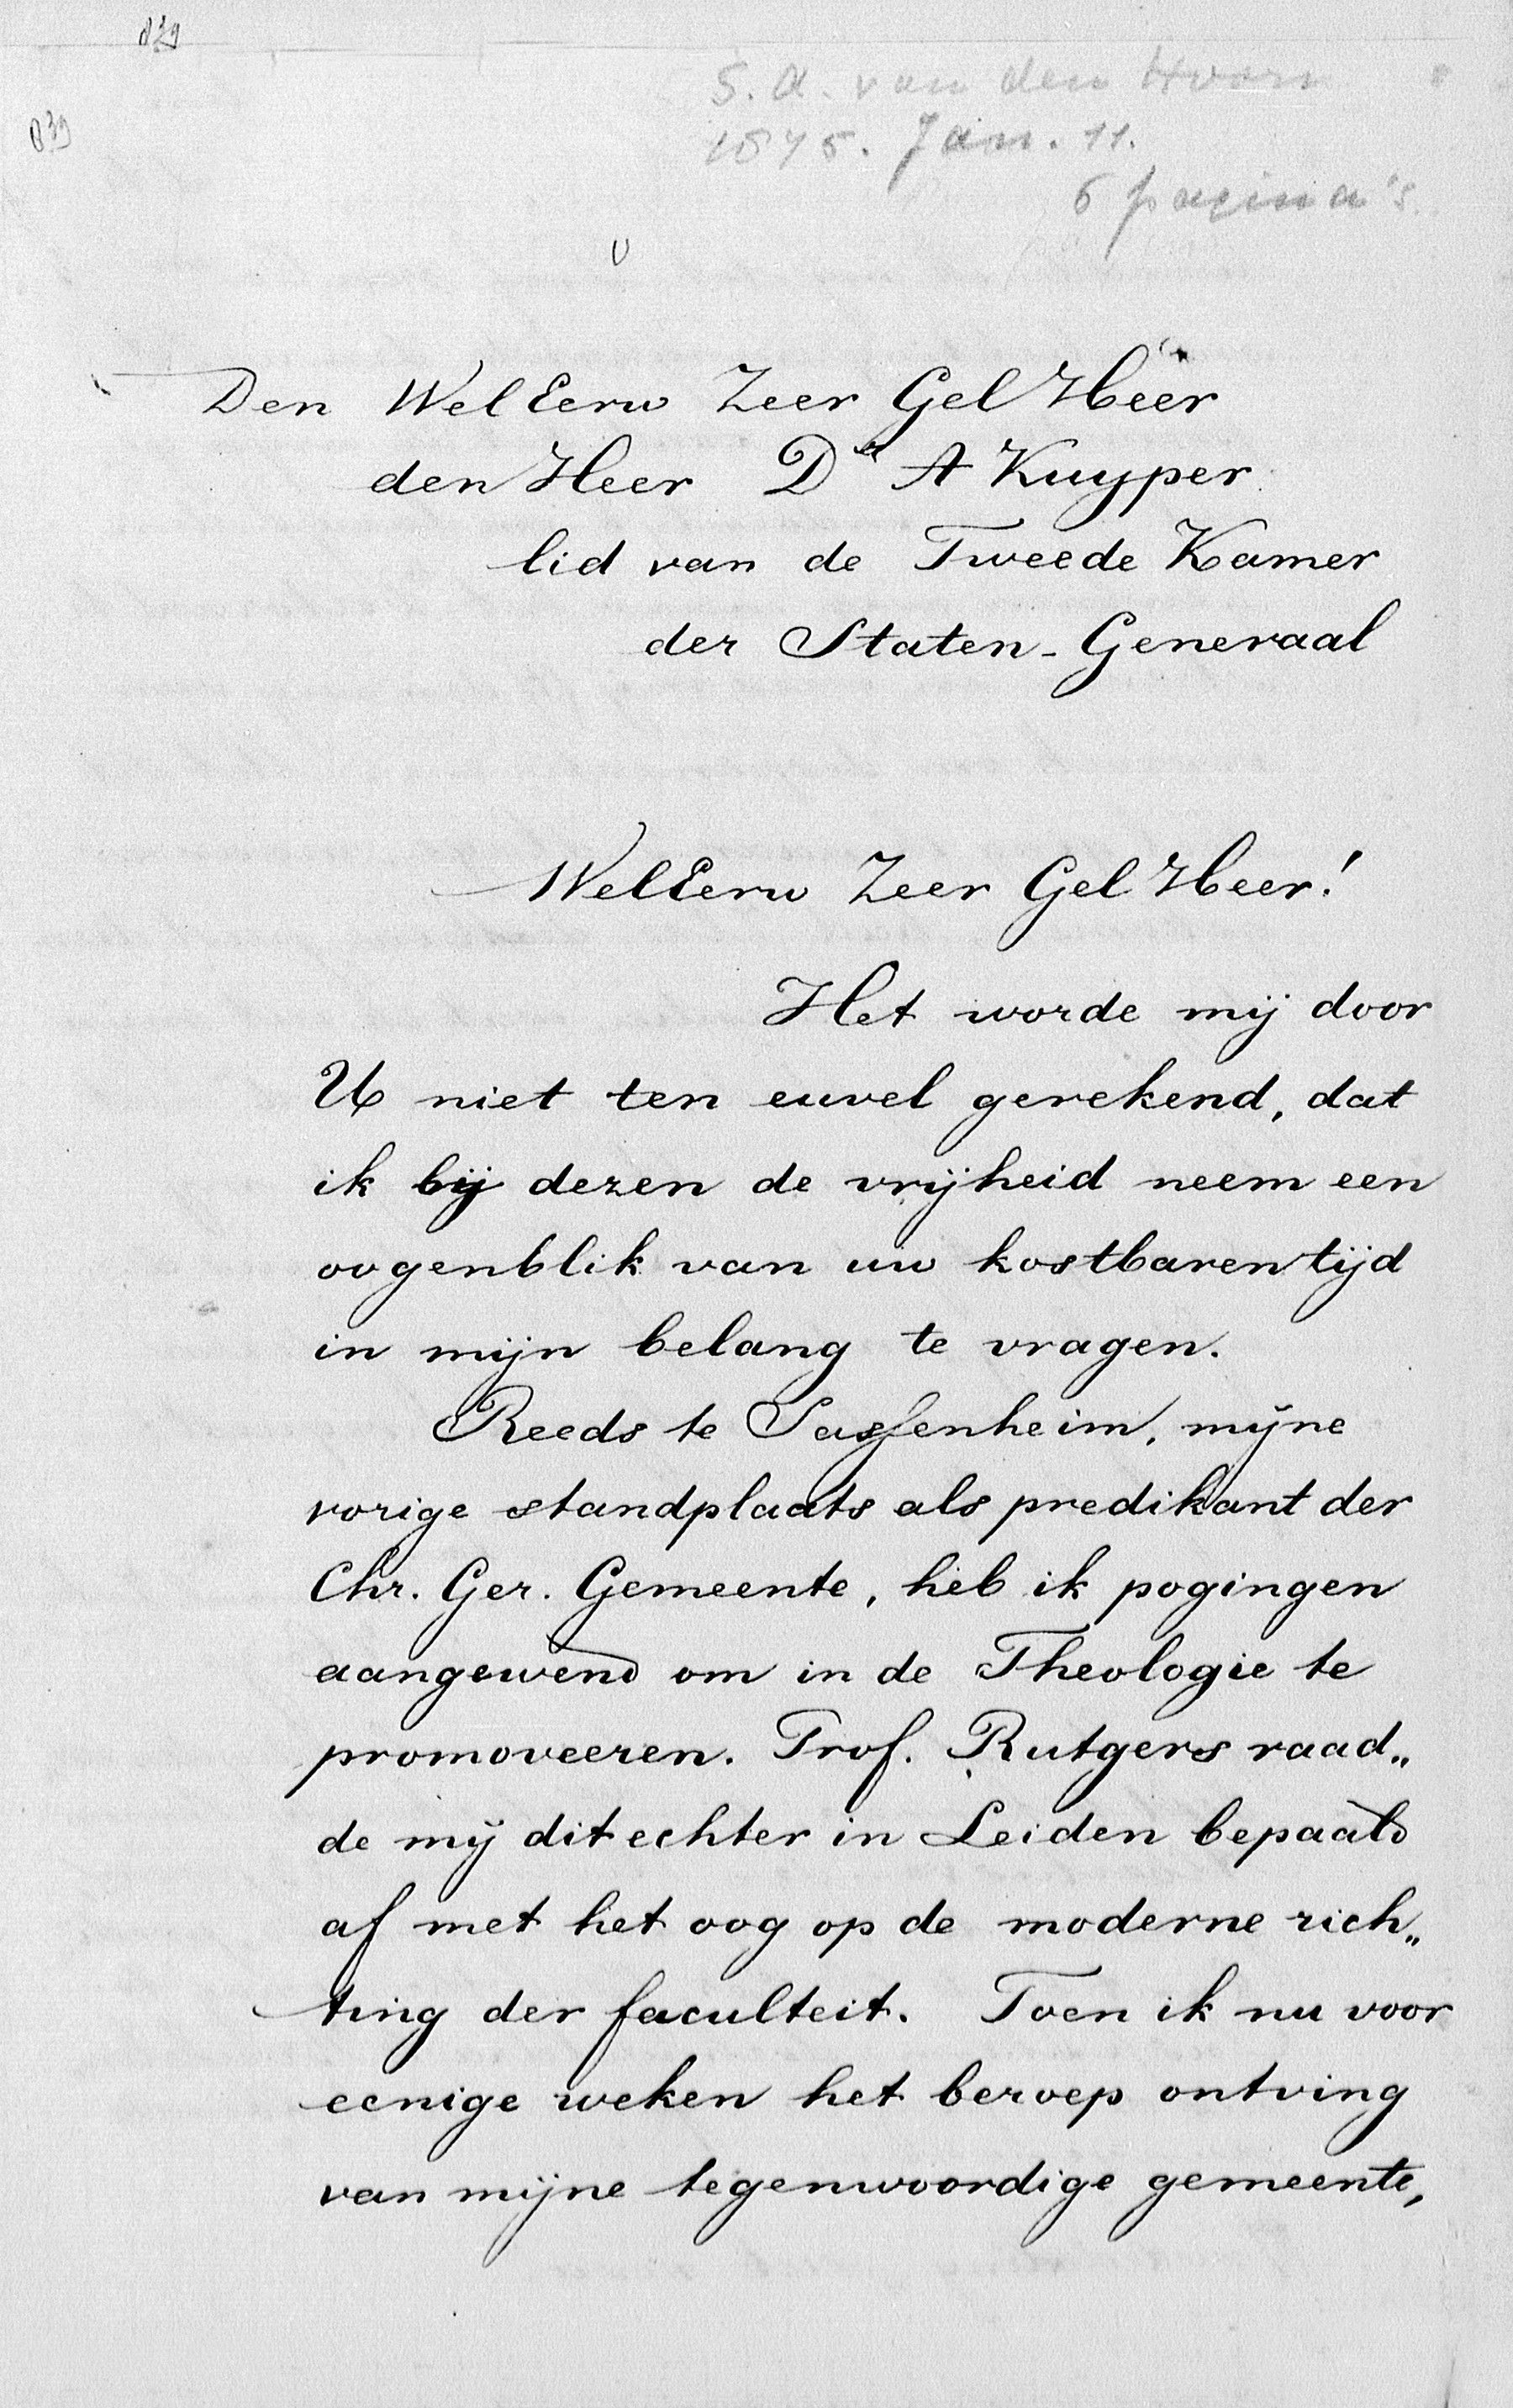 839
S. A. van den Hoorn
839
1875. Jan. 11.
6 pagina's.
Den WelEerw Zeer Gel Heer
den Heer Dr A Kuyper
lid van de Tweede Kamer
der Staten-Generaal
WelEerw Zeer Gel Heer!
Het worde mij door
U niet ten euvel gerekend, dat
ik bij dezen de vrijheid neem een
oogenblik van uw kostbaren tijd
in mijn belang te vragen.
Reeds te Sassenheim, mijne
vorige standplaats als predikant der
Chr. Ger. Gemeente, heb ik pogingen
aangewend om in de Theologie te
promoveeren. Prof. Rutgers raad„
de mij dit echter in Leiden bepaald
af met het oog op de moderne rich„
ting der faculteit. Toen ik nu voor
eenige weken het beroep ontving
van mijne tegenwoordige gemeente,